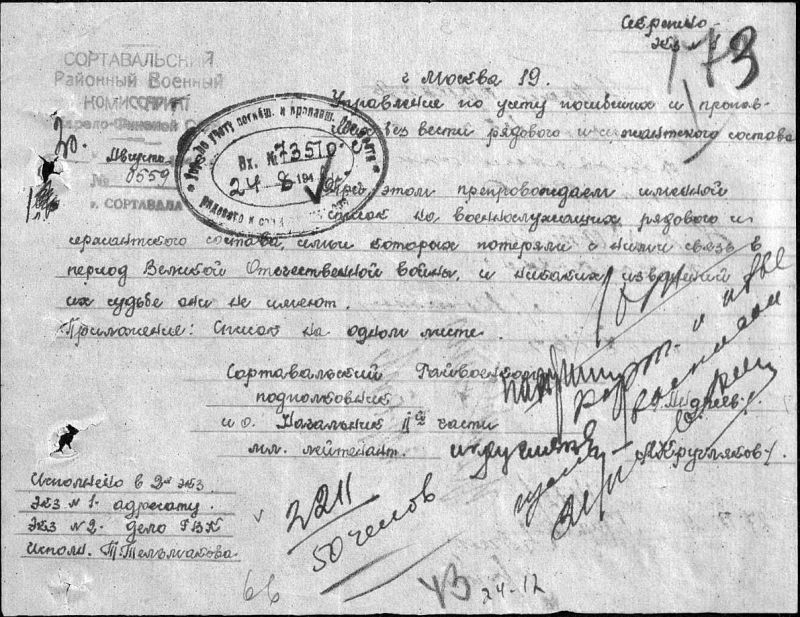 Секретно
Экз № 1
173
СОРТАВАЛЬСКИЙ
Районный Военный
КОМИССАРИАТ
Карело-Финской С
г. Москва 19.
Управление по учету погибших и пропав-
ших без вести рядового и сержантского состава
30. Августа
№ 0559
г. СОРТАВАЛА
Упр. по учету погибш. и пропавш. без вести
рядового и серж
Вх. № 73510
24 8 194
При этом препровождаем именной
список на военнослужащих рядового и
сержантского состава, семьи которых потеряли с ними связь в
период Великой Отечественной войны, и никаких извещений
их судьбе они не имеют.
Приложение: Список на одном листе.
Сортавальский Райвоенком
подполковник
и о. Начальник II й части
мл. лейтенант.
/Кругляков/.
Исполнено в 2х экз.
Экз № 1- адресату.
Экз № 2- дело РВК
Исполн. Т. Тельмакова
2211
50 челов
66
УЗ 24-12